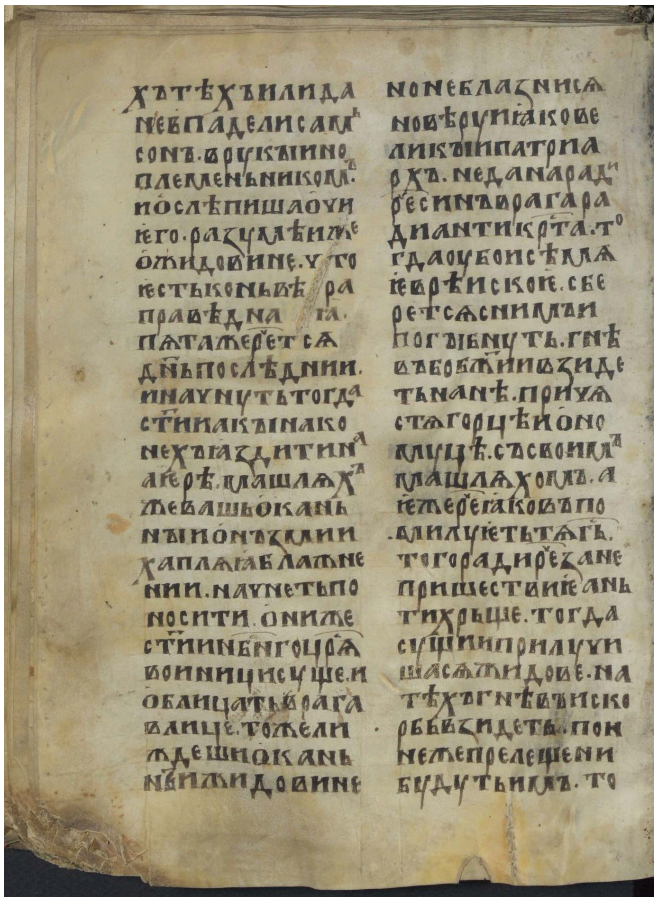 хътѣхъилида
невпаделисамъ
сонъ.врукыино
племеньникомъ.
иослѣпишаочи
ѥго.разумѣиже
ожидовине.что
ѥстьконьвѣ ра
правѣдна  ꙗ.
пѧтамерⷱ҇етсѧ
дн҃ьпослѣднии.
иначнутьтогда
ст҃ииꙗкыинако
нехъꙗздитина
аи҅рѣ.машлѧхъ
жевашьокань
ныионъзмии
хаплѧꙗблажне
нии.начнетьпо
носити.ониже
ст҃иинб҃нгоцр҃ѧ
воиницисуще.и
обличатьврага
влице.тожели
ждешиокань
ныижидовине
нонеблазнисѧ
новѣруиꙗкове
ликыипатриа
рхъ.неданаради
рⷱ҇есинъврагара
диантикрⷭ҇та.то
гдаоубоисѣмѧ
ѥврѣискоѥ.сбе
ретсѧснимъи
погыбнуть.гнѣ
въбоб҃жиивзиде
тьнанѣ.причѧ
стѧгорцѣионо
муцѣ.съсвоимъ
машлѧхомъ.а
ѥжерⷱ҇еꙗковъпо
.милуѥтьтѧгь.
тогорадирⷱ҇езане
пришествиѥань
тихрьще.тогда
сущииприлучи
шасѧжидове.на
тѣхъгнѣвъиско
рбьвзидеть.пон
нежепрелещени
будутьимъ.то